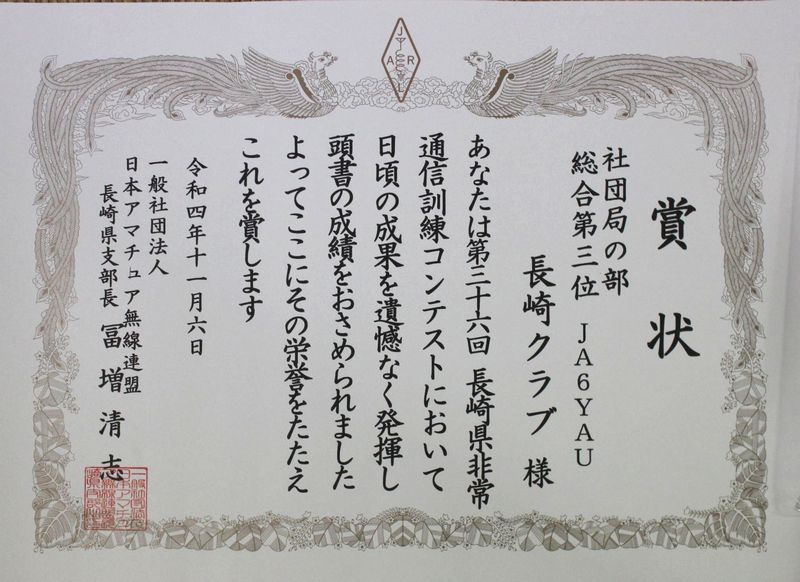 JARL
賞状
社団局の部
総合第三位 JA6YAU
長崎クラブ 様
あなたは第三十六回 長崎県非常
通信訓練コンテストにおいて
日頃の成果を遺憾なく発揮し
頭書の成績をおさめられました
よってここにその栄誉をたたえ
これを賞します
令和四年十一月六日
一般社団法人
日本アマチュア無線連盟
長崎県支部長 冨増清志